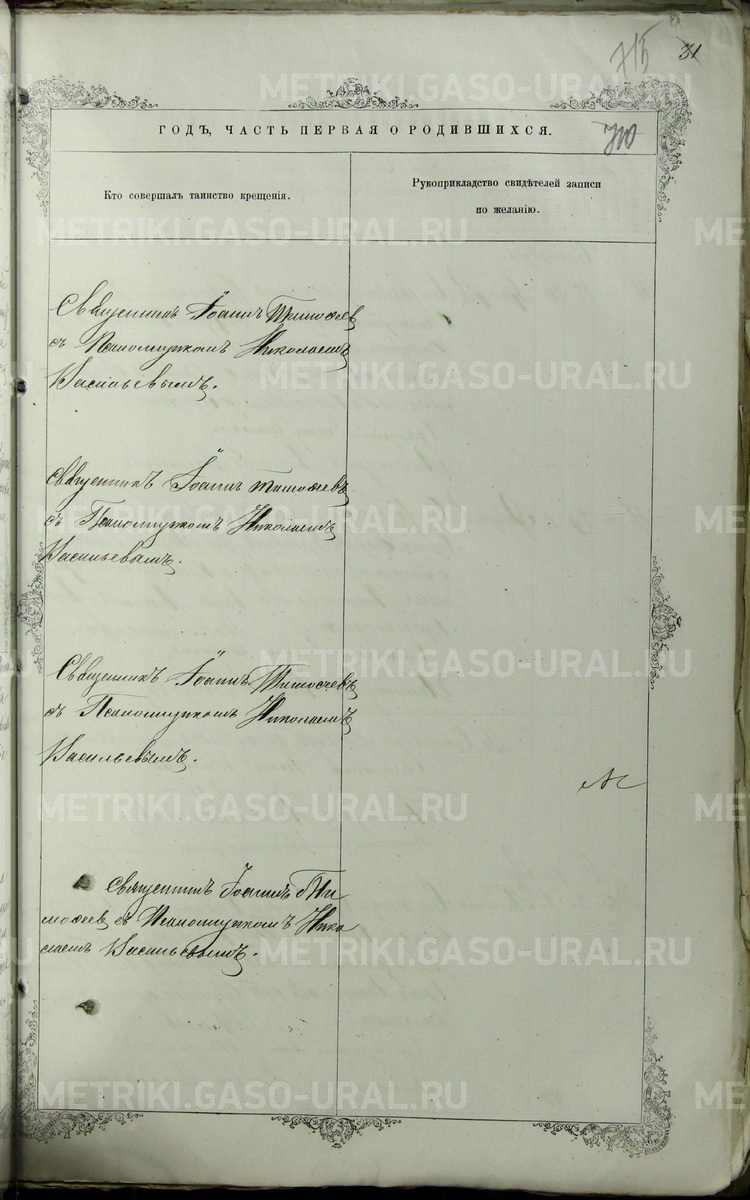 715
31
ГОДЪ, ЧАСТЬ ПЕРВАЯ О РОДИВШИХСЯ.
710
Кто совершалъ таинство крещенія.
Рукоприкладство свидѣтелей записи
по желанію.
Священникъ Іоаннъ Тимоѳеевъ
съ Псаломщикомъ Николаемъ
Васильевымъ.
Священникъ Іоаннъ Тимоѳеевъ
съ Псаломщикомъ Николаемъ
Васильевымъ.
Священникъ Іоаннъ Тимоѳеевъ
съ Псаломщикомъ Николаемъ
Васильевымъ.
Священникъ Іоаннъ Ти
моѳеевъ съ Псаломщикомъ Нико
лаемъ Васильевымъ.
METRIKI.GASO-URAL.RU